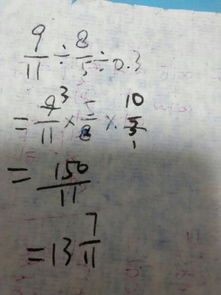 9/11 ÷ 8/5 ÷ 0.3
= 9³/11 × 5/8 × 10/3 1
= 150/11
= 13 7/11